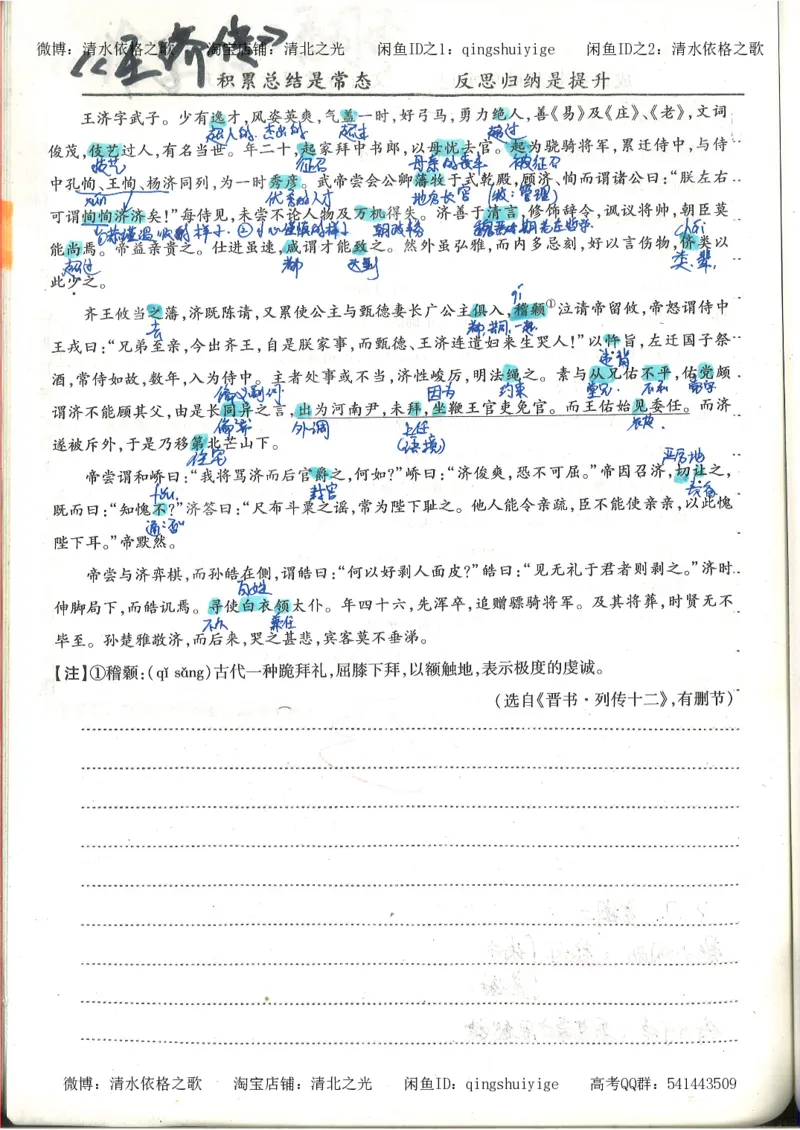 微博：清水依格之歌 淘宝店铺：清北之光 闲鱼ID之1：qingshuiyige 闲鱼ID之2：清水依格之歌
《王济传》
积累总结是常态 反思归纳是提升
王济字武子。少有逸才，风姿英爽，气盖一时，好弓马，勇力绝人，善《易》及《庄》、《老》，文词
超人的．杰出的 超过 超过
俊茂，伎艺过人，有名当世。年二十，起家拜中书郎，以母忧去官。起为骁骑将军，累迁侍中，与侍
技艺 征召 母亲的丧事 被征召
中孔恂、王恂、杨济同列，为一时秀彦。武帝尝会公卿藩牧于式乾殿，顾济、恂而谓诸公曰：“朕左右
优秀的人才 地方长官 (牧：管理)
可谓恂恂济济矣！”每侍见，未尝不论人物及万机得失。济善于清言，修饰辞令，讽议将帅，朝臣莫
朝政
能尚焉。帝益亲贵之。仕进虽速，咸谓才能致之。然外虽弘雅，而内多忌刻，好以言伤物，侪类以
超过 都 达到 类．辈．
此少之。
齐王攸当之藩，济既陈请，又累使公主与甄德妻长广公主俱入，稽颡①泣请帝留攸，帝怒谓侍中
去
王戎曰：“兄弟至亲，今出齐王，自是朕家事，而甄德、王济连遣妇来生哭人！”以忤旨，左迁国子祭
违背
酒，常侍如故，数年，入为侍中。主者处事或不当，济性峻厉，明法绳之。素与从兄佑不平，佑党颇
因为 约束 堂兄． 不和
谓济不能顾其父，由是长同异之言，出为河南尹，未拜，坐鞭王官吏免官。而王佑始见委任。而济
外调 上任
遂被斥外，于是乃移第北芒山下。
住宅 (语境)
帝尝谓和峤曰：“我将骂济而后官爵之，何如？”峤曰：“济俊爽，恐不可屈。”帝因召济，切让之，
封官 严厉地 责备
既而曰：“知愧不？”济答曰：“尺布斗粟之谣，常为陛下耻之。他人能令亲疏，臣不能使亲亲，以此愧
通：否
陛下耳。”帝默然。
帝尝与济弈棋，而孙皓在侧，谓皓曰：“何以好剥人面皮？”皓曰：“见无礼于君者则剥之。”济时
伸脚局下，而皓讥焉。寻使白衣领太仆。年四十六，先浑卒，追赠骠骑将军。及其将葬，时贤无不
不久 百姓 兼任
毕至。孙楚雅敬济，而后来，哭之甚悲，宾客莫不垂涕。
【注】①稽颡：(qǐ sǎng)古代一种跪拜礼，屈膝下拜，以额触地，表示极度的虔诚。
(选自《晋书·列传十二》，有删节)
微博：清水依格之歌 淘宝店铺：清北之光 闲鱼ID：qingshuiyige 高考QQ群：541443509